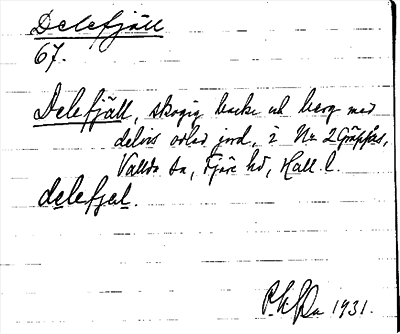 Delefjäll
67.
Delefjäll, skogig backe och berg med
delvis odlad jord, i Nr 2 Gräppås,
Vallda sn, Fjäre hd, Hall. l.
delefjel.
1931.